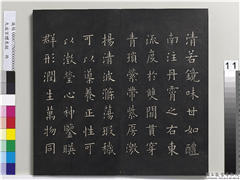 清若鏡味甘如醴
南注丹霄之右東
流度於雙闕貫穿
青瑣縈帶紫房激
揚清波滌蕩瑕穢
可以導養正性可
以澂瑩心神鑒暎
群形潤生萬物同
11